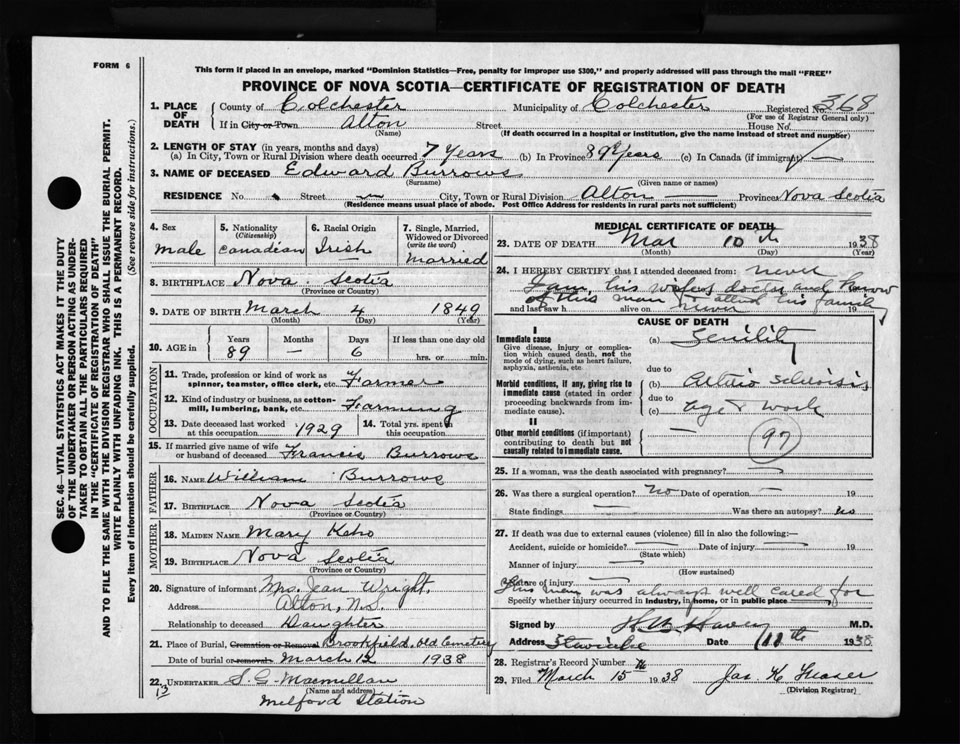 FORM 6
This form if placed in an envelope, marked "Dominion Statistics—Free, penalty for improper use $300," and properly addressed will pass through the mail "FREE"
PROVINCE OF NOVA SCOTIA—CERTIFICATE OF REGISTRATION OF DEATH
SEC. 46—VITAL STATISTICS ACT MAKES IT THE DUTY
OF THE UNDERTAKER OR PERSON ACTING AS UNDER-
TAKER TO OBTAIN ALL THE PARTICULARS REQUIRED
IN THE "CERTIFICATE OF REGISTRATION OF DEATH"
AND TO FILE THE SAME WITH THE DIVISION REGISTRAR WHO SHALL ISSUE THE BURIAL PERMIT.
WRITE PLAINLY WITH UNFADING INK. THIS IS A PERMANENT RECORD.
Every item of information should be carefully supplied. (See reverse side for instructions.)
1. PLACE OF DEATH County of Colchester Municipality of Colchester Registered No. 368
(For use of Registrar General only)
If in City or Town Alton Street House No.
(Name) (If death occurred in a hospital or institution, give the name instead of street and number)
2. LENGTH OF STAY (in years, months and days)
(a) In City, Town or Rural Division where death occurred 7 Years (b) In Province 89 Years (c) In Canada (if immigrant) —
3. NAME OF DECEASED Edward Burrows
(Surname) (Given name or names)
RESIDENCE No. Street City, Town or Rural Division Alton Province Nova Scotia
(Residence means usual place of abode. Post Office Address for residents in rural parts not sufficient)
4. Sex male
5. Nationality (Citizenship) Canadian
6. Racial Origin Irish
7. Single, Married, Widowed or Divorced (write the word) Married
8. BIRTHPLACE Nova Scotia
(Province or Country)
9. DATE OF BIRTH March 4 1849
(Month) (Day) (Year)
10. AGE in Years 89 Months — Days 6 If less than one day old
hrs. or min.
OCCUPATION
11. Trade, profession or kind of work as
spinner, teamster, office clerk, etc. Farmer
12. Kind of industry or business, as cotton-
mill, lumbering, bank, etc. Farming
13. Date deceased last worked at this occupation 1929
14. Total yrs. spent in this occupation
15. If married give name of wife
or husband of deceased Francis Burrows
FATHER
16. NAME William Burrows
17. BIRTHPLACE Nova Scotia
(Province or Country)
MOTHER
18. MAIDEN NAME Mary Keho
19. BIRTHPLACE Nova Scotia
(Province or Country)
20. Signature of informant Mrs. Jean Wright,
Address Alton, N.S.
Relationship to deceased Daughter
21. Place of Burial, Cremation or Removal Brookfield, Old Cemetery
Date of burial or removal March 12 1938
22. UNDERTAKER S. G. Macmillan
(Name and address)
13
Milford Station
MEDICAL CERTIFICATE OF DEATH
23. DATE OF DEATH Mar 10th 1938
(Month) (Day) (Year)
24. I HEREBY CERTIFY that I attended deceased from: never
I am his wifes doctor and know
of this man I attend his family
and last saw h alive on never 19
CAUSE OF DEATH
I
Immediate cause
Give disease, injury or complica-
tion which caused death, not the
mode of dying, such as heart failure,
asphyxia, asthenia, etc
(a) Senility
due to
Morbid conditions, if any, giving rise to
immediate cause (stated in order
proceeding backwards from im-
mediate cause).
(b) Arterio Sclerosis,
due to
(c) age & work
II
Other morbid conditions (if important)
contributing to death but not
causally related to immediate cause.
—
97
25. If a woman, was the death associated with pregnancy? —
26. Was there a surgical operation? no Date of operation — 19
State findings — Was there an autopsy? no
27. If death was due to external causes (violence) fill in also the following:—
Accident, suicide or homicide? — Date of injury — 19
(State which)
Manner of injury —
(How sustained)
Nature of injury —
This man was always well cared for
Specify whether injury occurred in industry, in home, or in public place
Signed by M.D.
Address Stewiacke Date 11th 1938
28. Registrar's Record Number
29. Filed March 15th 1938 Jas. K Fraser
(Division Registrar)